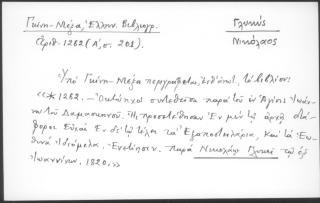 Γκίνη-Μέξα, Ἑλλην. Βιβλιογρ.
Γλυκύς
Ἀριθ. 1262 (Α΄, σ. 201).
Νικόλαος
Ὑπὸ Γκίνη-Μέξα περιγράφεται,
«*1262. - Ὀκτώηχος συντεθεῖσα παρὰ τοῦ ἐν Ἁγίοις Ἰωάν-
νου τοῦ Δαμασκηνοῦ. ᾗ προσετέθησαν Ἐν μὲν τῇ ἀρχῇ διά-
φοροι Εὐχαὶ Ἐν δὲ τῷ τέλει τὰ Ἐξαποστειλάρια, καὶ τὰ Ἑω-
θινὰ Ἰδιόμελα. Ἐνετίησιν. Παρὰ Νικολάῳ Γλυκεῖ τῷ ἐξ
Ἰωαννίνων. 1820.»